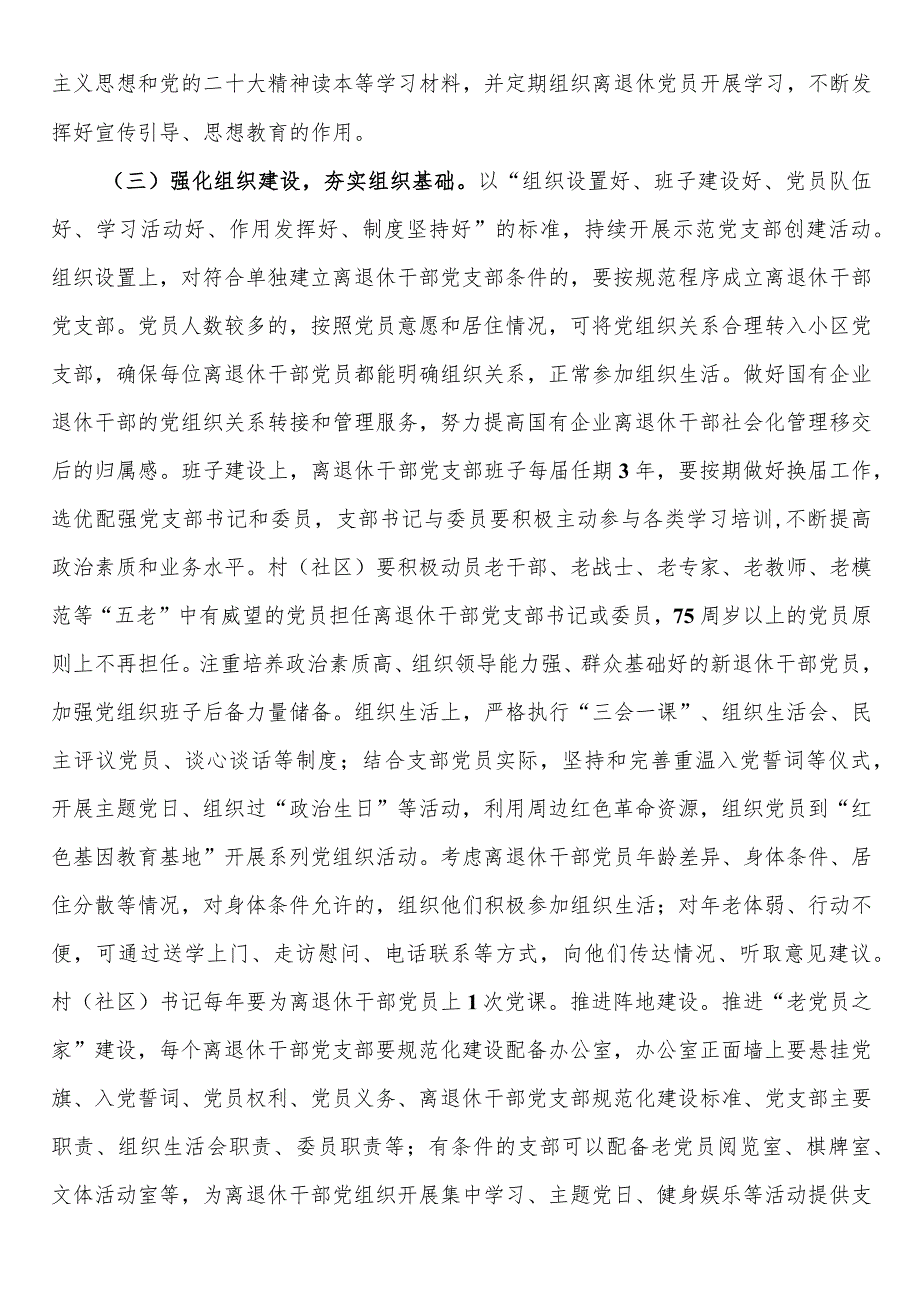 主义思想和党的二十大精神读本等学习材料，并定期组织离退休党员开展学习，不断发
挥好宣传引导、思想教育的作用。
（三）强化组织建设，夯实组织基础。以“组织设置好、班子建设好、党员队伍
好、学习活动好、作用发挥好、制度坚持好”的标准，持续开展示范党支部创建活动。
组织设置上，对符合单独建立离退休干部党支部条件的，要按规范程序成立离退休干部
党支部。党员人数较多的，按照党员意愿和居住情况，可将党组织关系合理转入小区党
支部，确保每位离退休干部党员都能明确组织关系，正常参加组织生活。做好国有企业
退休干部的党组织关系转接和管理服务，努力提高国有企业离退休干部社会化管理移交
后的归属感。班子建设上，离退休干部党支部班子每届任期3年，要按期做好换届工作，
选优配强党支部书记和委员，支部书记与委员要积极主动参与各类学习培训,不断提高
政治素质和业务水平。村（社区）要积极动员老干部、老战士、老专家、老教师、老模
范等“五老”中有威望的党员担任离退休干部党支部书记或委员，75周岁以上的党员原
则上不再担任。注重培养政治素质高、组织领导能力强、群众基础好的新退休干部党员，
加强党组织班子后备力量储备。组织生活上，严格执行“三会一课”、组织生活会、民
主评议党员、谈心谈话等制度；结合支部党员实际，坚持和完善重温入党誓词等仪式，
开展主题党日、组织过“政治生日”等活动，利用周边红色革命资源，组织党员到“红
色基因教育基地”开展系列党组织活动。考虑离退休干部党员年龄差异、身体条件、居
住分散等情况，对身体条件允许的，组织他们积极参加组织生活；对年老体弱、行动不
便，可通过送学上门、走访慰问、电话联系等方式，向他们传达情况、听取意见建议。
村（社区）书记每年要为离退休干部党员上1次党课。推进阵地建设。推进“老党员之
家”建设，每个离退休干部党支部要规范化建设配备办公室，办公室正面墙上要悬挂党
旗、入党誓词、党员权利、党员义务、离退休干部党支部规范化建设标准、党支部主要
职责、组织生活会职责、委员职责等；有条件的支部可以配备老党员阅览室、棋牌室、
文体活动室等，为离退休干部党组织开展集中学习、主题党日、健身娱乐等活动提供支